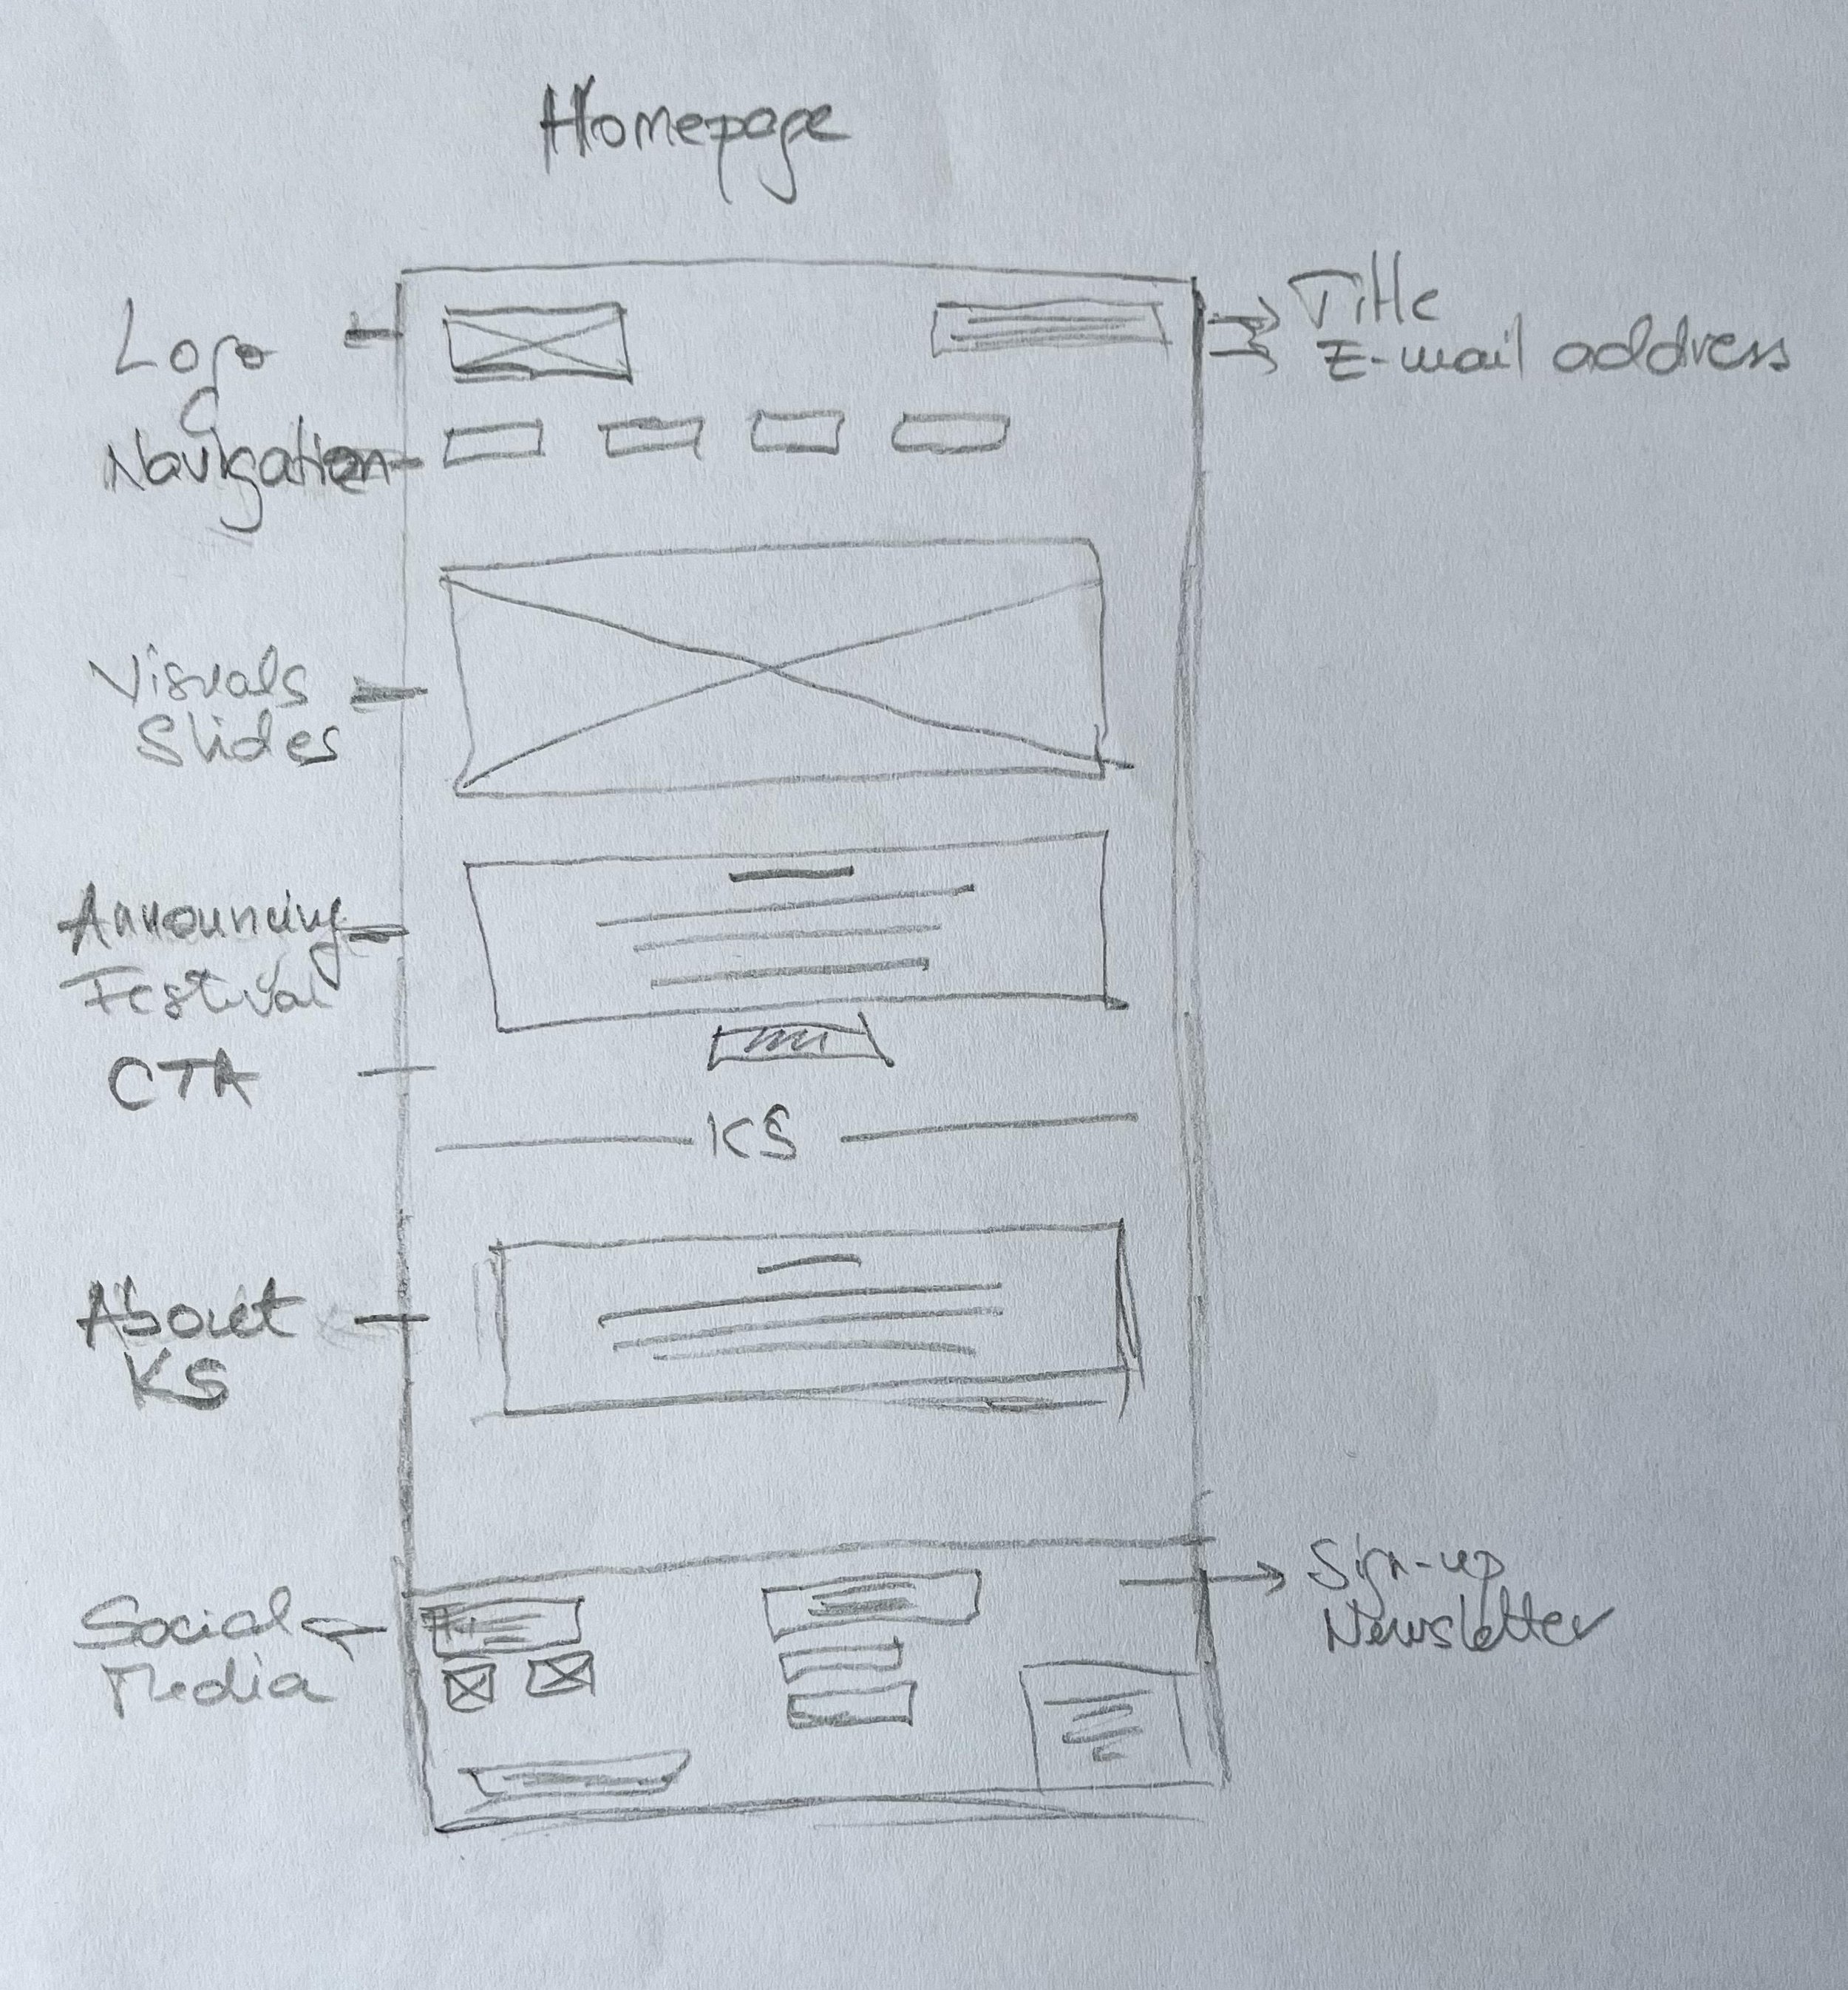 Homepage
Logo
Title
E-mail address
Navigation
Visuals
Slides
Announcing
Festival
CTA
KS
About
KS
Social
Media
Sign-up
Newsletter